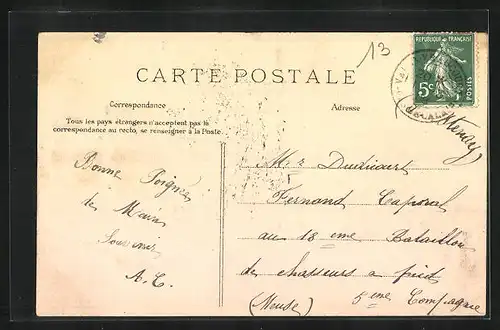 13
REPUBLIQUE FRANÇAISE
5c POSTES
CARTE POSTALE
Correspondance
Adresse
Tous les pays étrangers n'acceptent pas la
correspondance au recto, se renseigner à la Poste.
(Stenay)
Bonne Poignée
de Main
Souvenir
A. C.
Mr Ducicourt
Fernand Caporal
au 18 eme Bataillon
de chasseurs a pied
(Meuse) 5 eme Compagnie